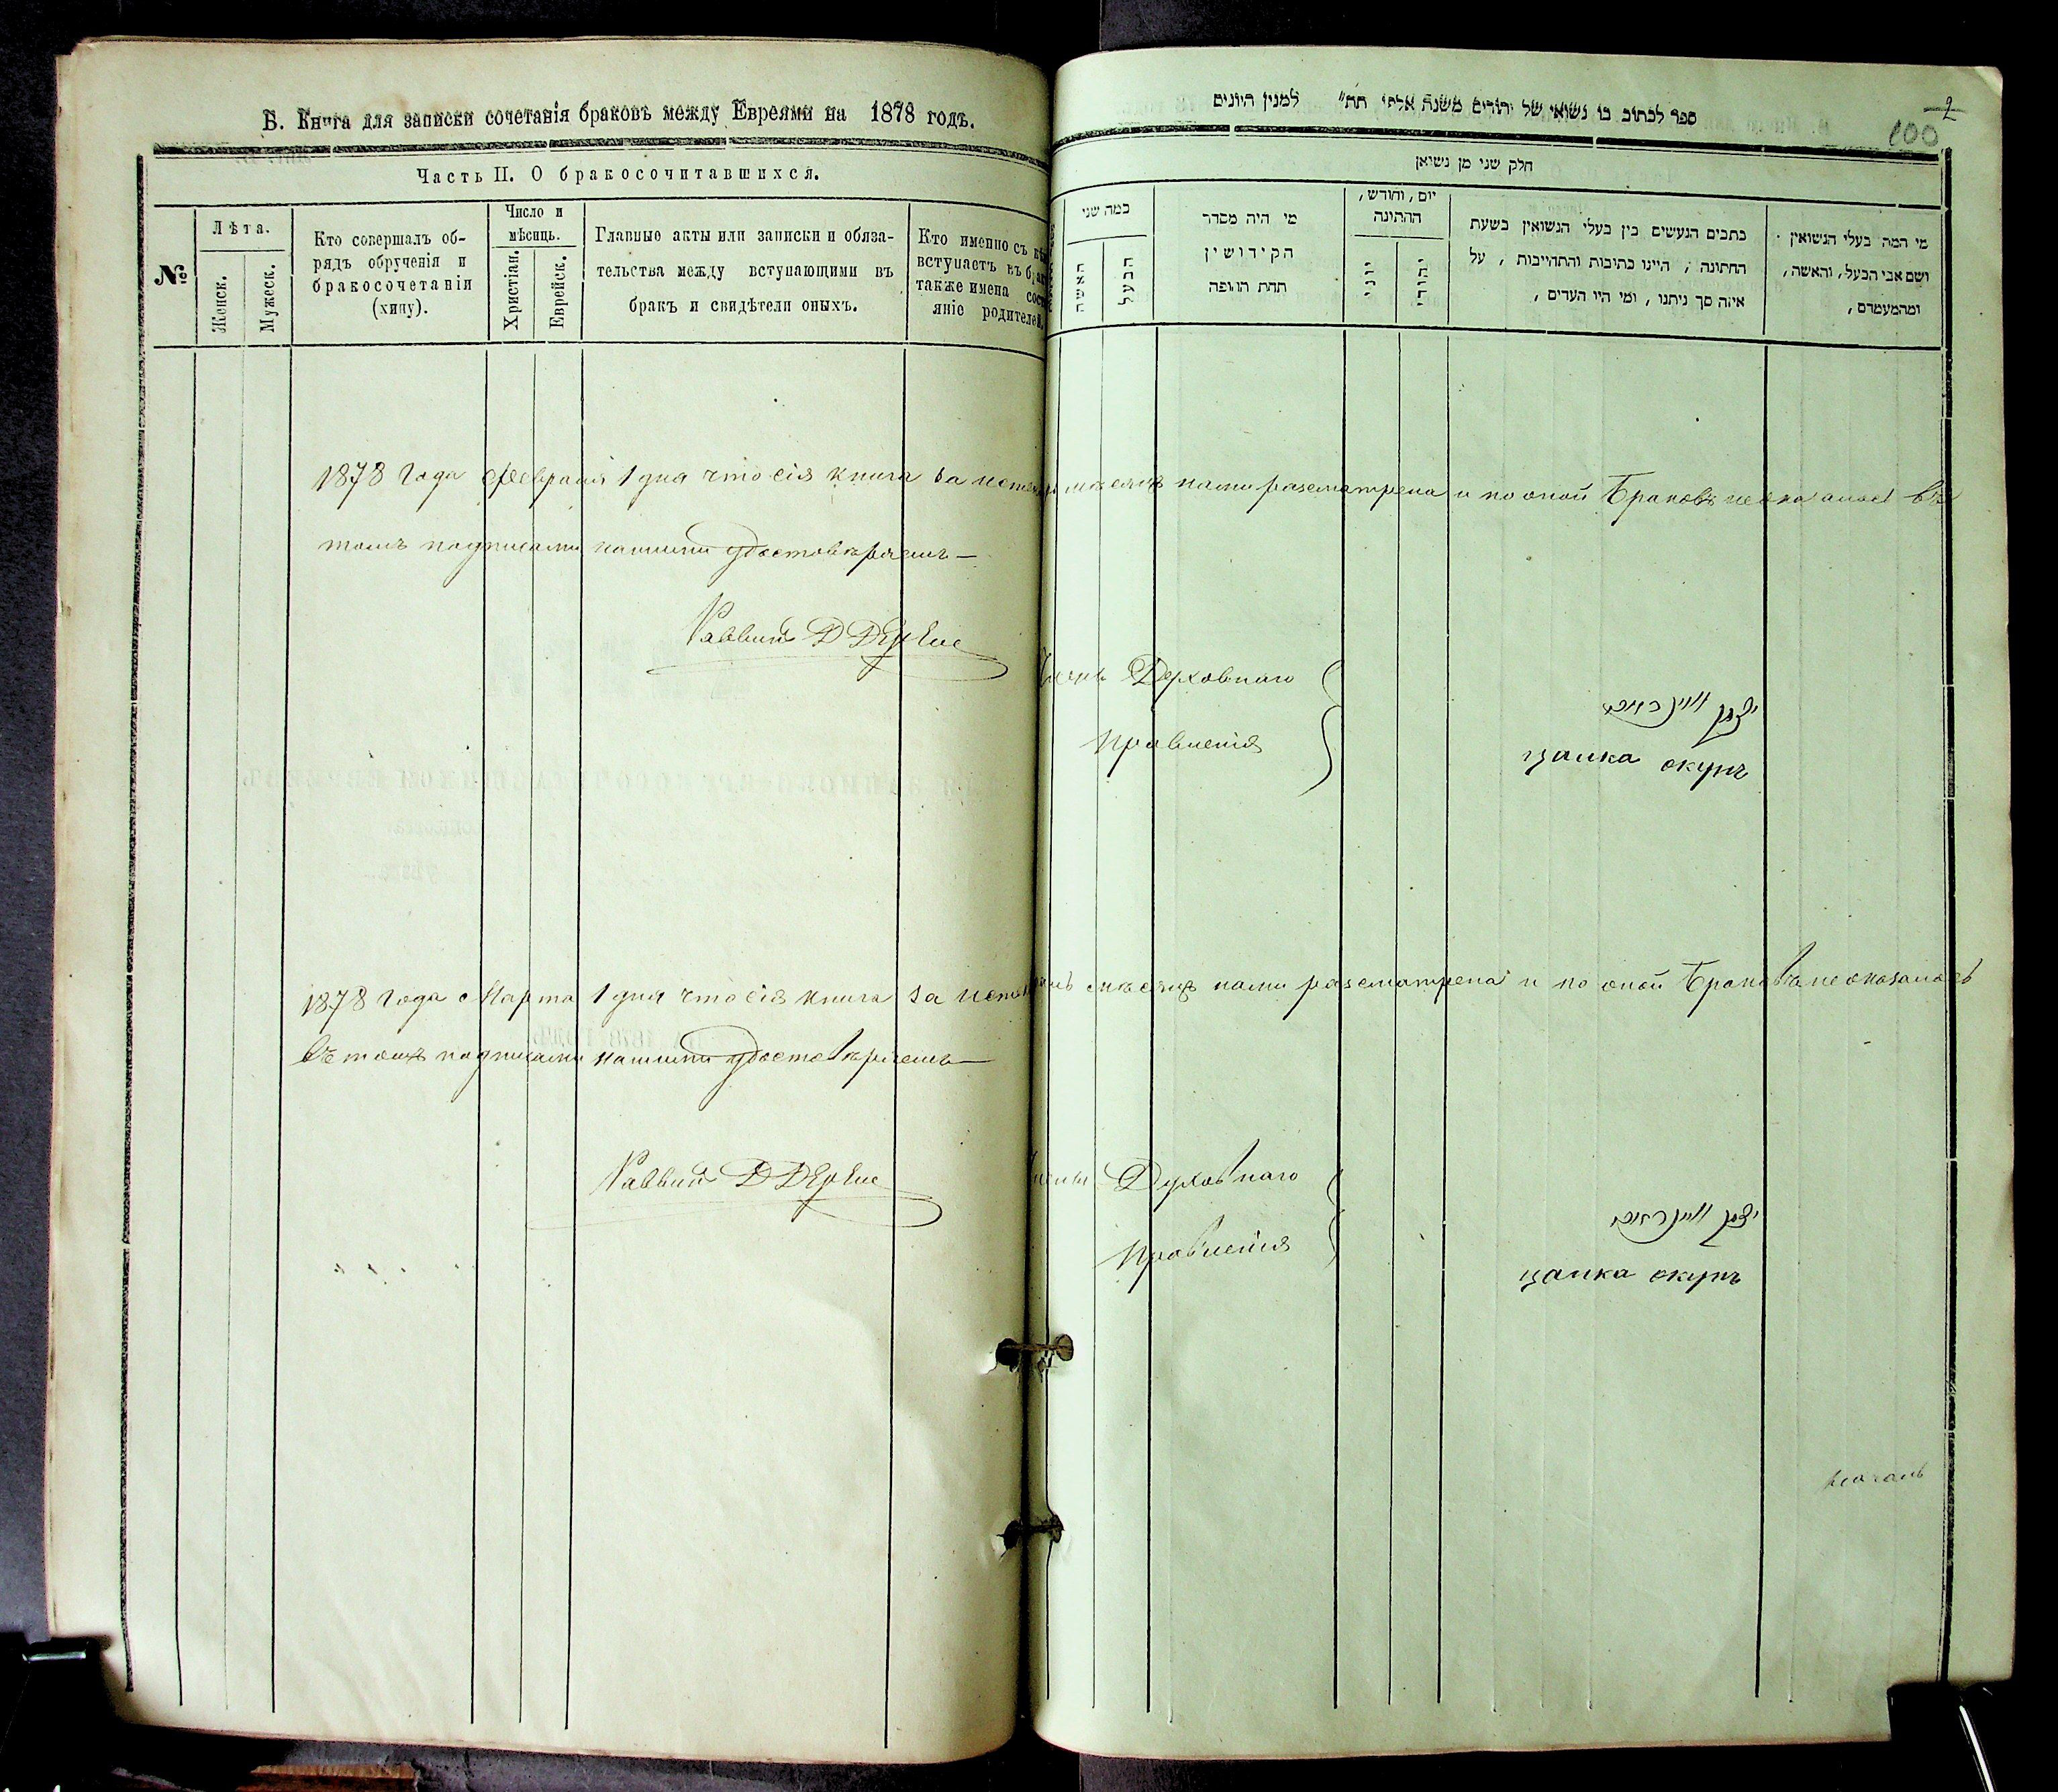 Б. Книга для записки сочетанія браковъ между Евреями на 1878 годъ.
Часть II. О бракосочитавшихся.
№
Лѣта.
Женск.
Мужеск.
Кто совершалъ об-
рядъ обрученія и
бракосочетанія
(хипу).
Число и
мѣсяць.
Христіан.
Еврейск.
Главные акты или записки и обяза-
тельства между вступающими въ
бракъ и свидѣтели оныхъ.
Кто именно съ
вступаетъ въ
также имена
яніе родителей.
ספר לכתוב בו נשואי של יהודים משנת אלפי תת״ למנין היונים
2
100
חלק שני מן נשיאן
כמה שני
האשה
הבעל
מי היה מסדר
הקידושין
תחת החופה
יום, וחודש,
ההתונה
יוני
יהודי
כתבים הנעשים בין בעלי הנשואין בשעת
החתונה, היינו כתיבות והתחייבות, על
איזה סך ניתנו, ומי היו העדים,
מי המה בעלי הנשואין
ושם אבי הבעל, והאשה,
ומהמעמדם,
1878 года Февраля 1 дня что сія книга за мѣсяцъ нами разсматрена и по оной Браковъ не въ
томъ подписами нашими удостовѣряемъ —
Раввин Д
Члены Духовнаго
Правленія
יצחק
цалка окунъ
1878 года Марта 1 дня что сія книга за мѣсяцъ нами разсматрена и по оной Браковъ не оказалось
въ томъ подписами нашими удостовѣряемъ —
Раввин Д
Члены Духовнаго
Правленія
יצחק
цалка окунъ